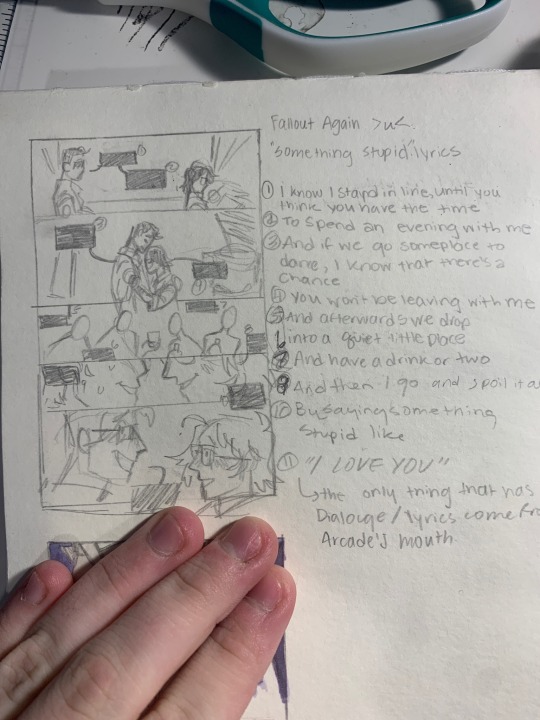 Fallout Again >u<
"something stupid" lyrics
① I know I stand in line, until you
think you have the time
② To spend an evening with me
③ And if we go someplace to
dance, I know that there's a
chance
④ You won't be leaving with me
⑤ And afterwards we drop
6 into a quiet little place
⑦ And have a drink or two
⑧ And then I go and spoil it a
⑩ By saying something
stupid like
⑪ "I LOVE YOU"
↳ the only thing that has
Dialouge/lyrics come fro
Arcade's mouth